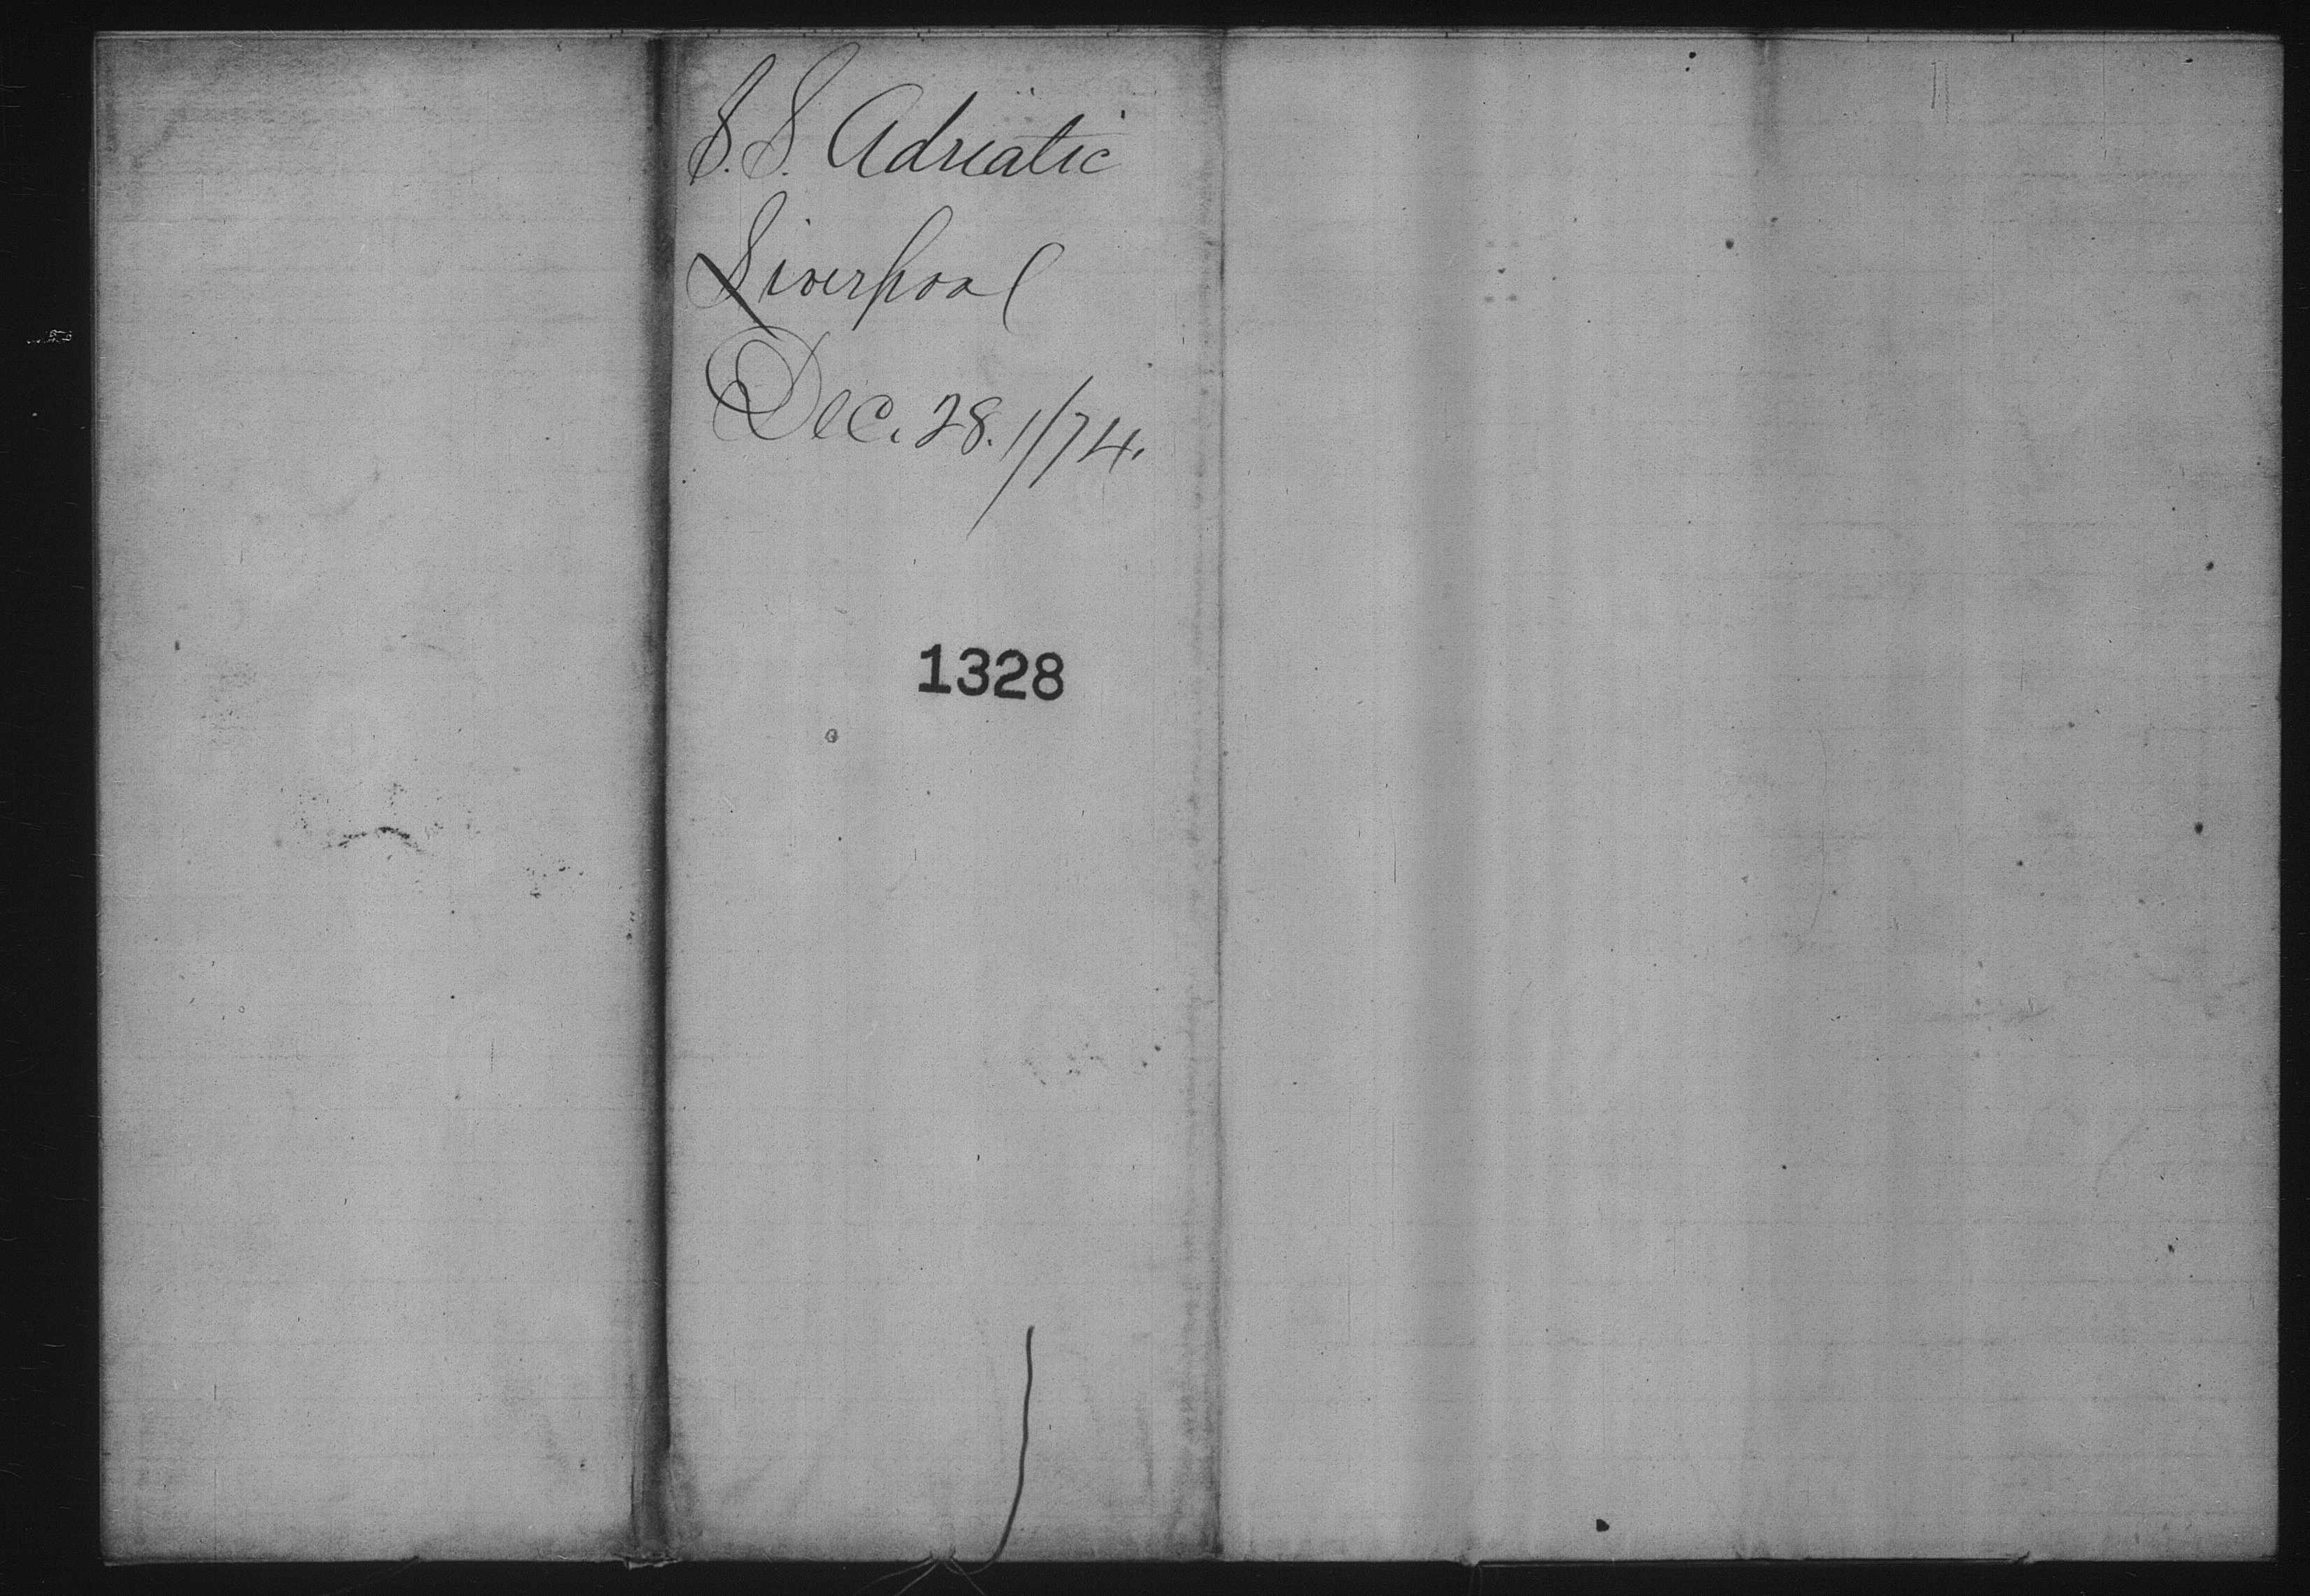 S.S. Adriatic
Liverpool
Dec. 28. 1/74.
1328